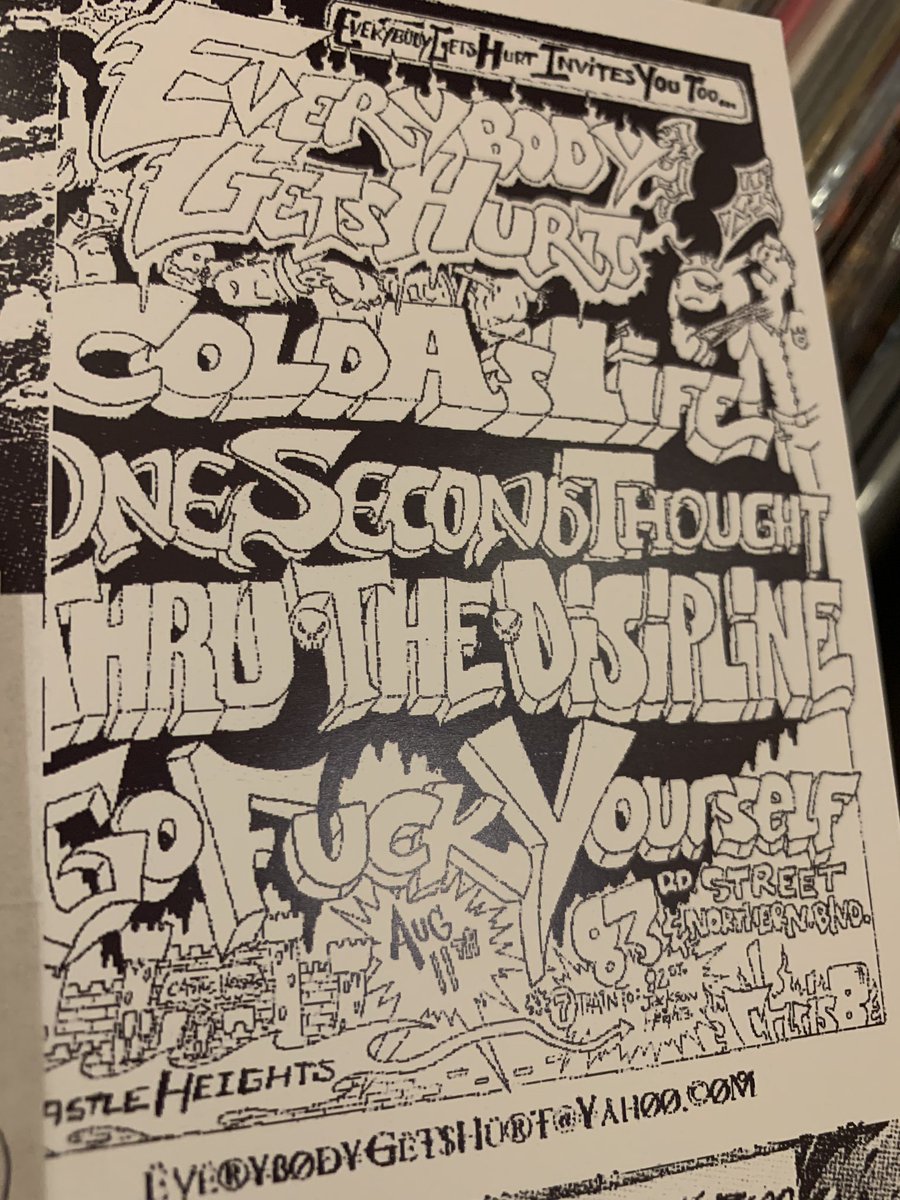 Everybody Gets Hurt Invites You Too...
Everybody
Gets Hurt
Cold As Life
One Second Thought
Thru The Disipline
Go Fuck Yourself
Aug
11th
83rd Street
& Northern.Blvd.
7 Train to: 82 St.
Jackson
Castle Heights
astle Heights
EverybodyGetsHurt@Yahoo.com